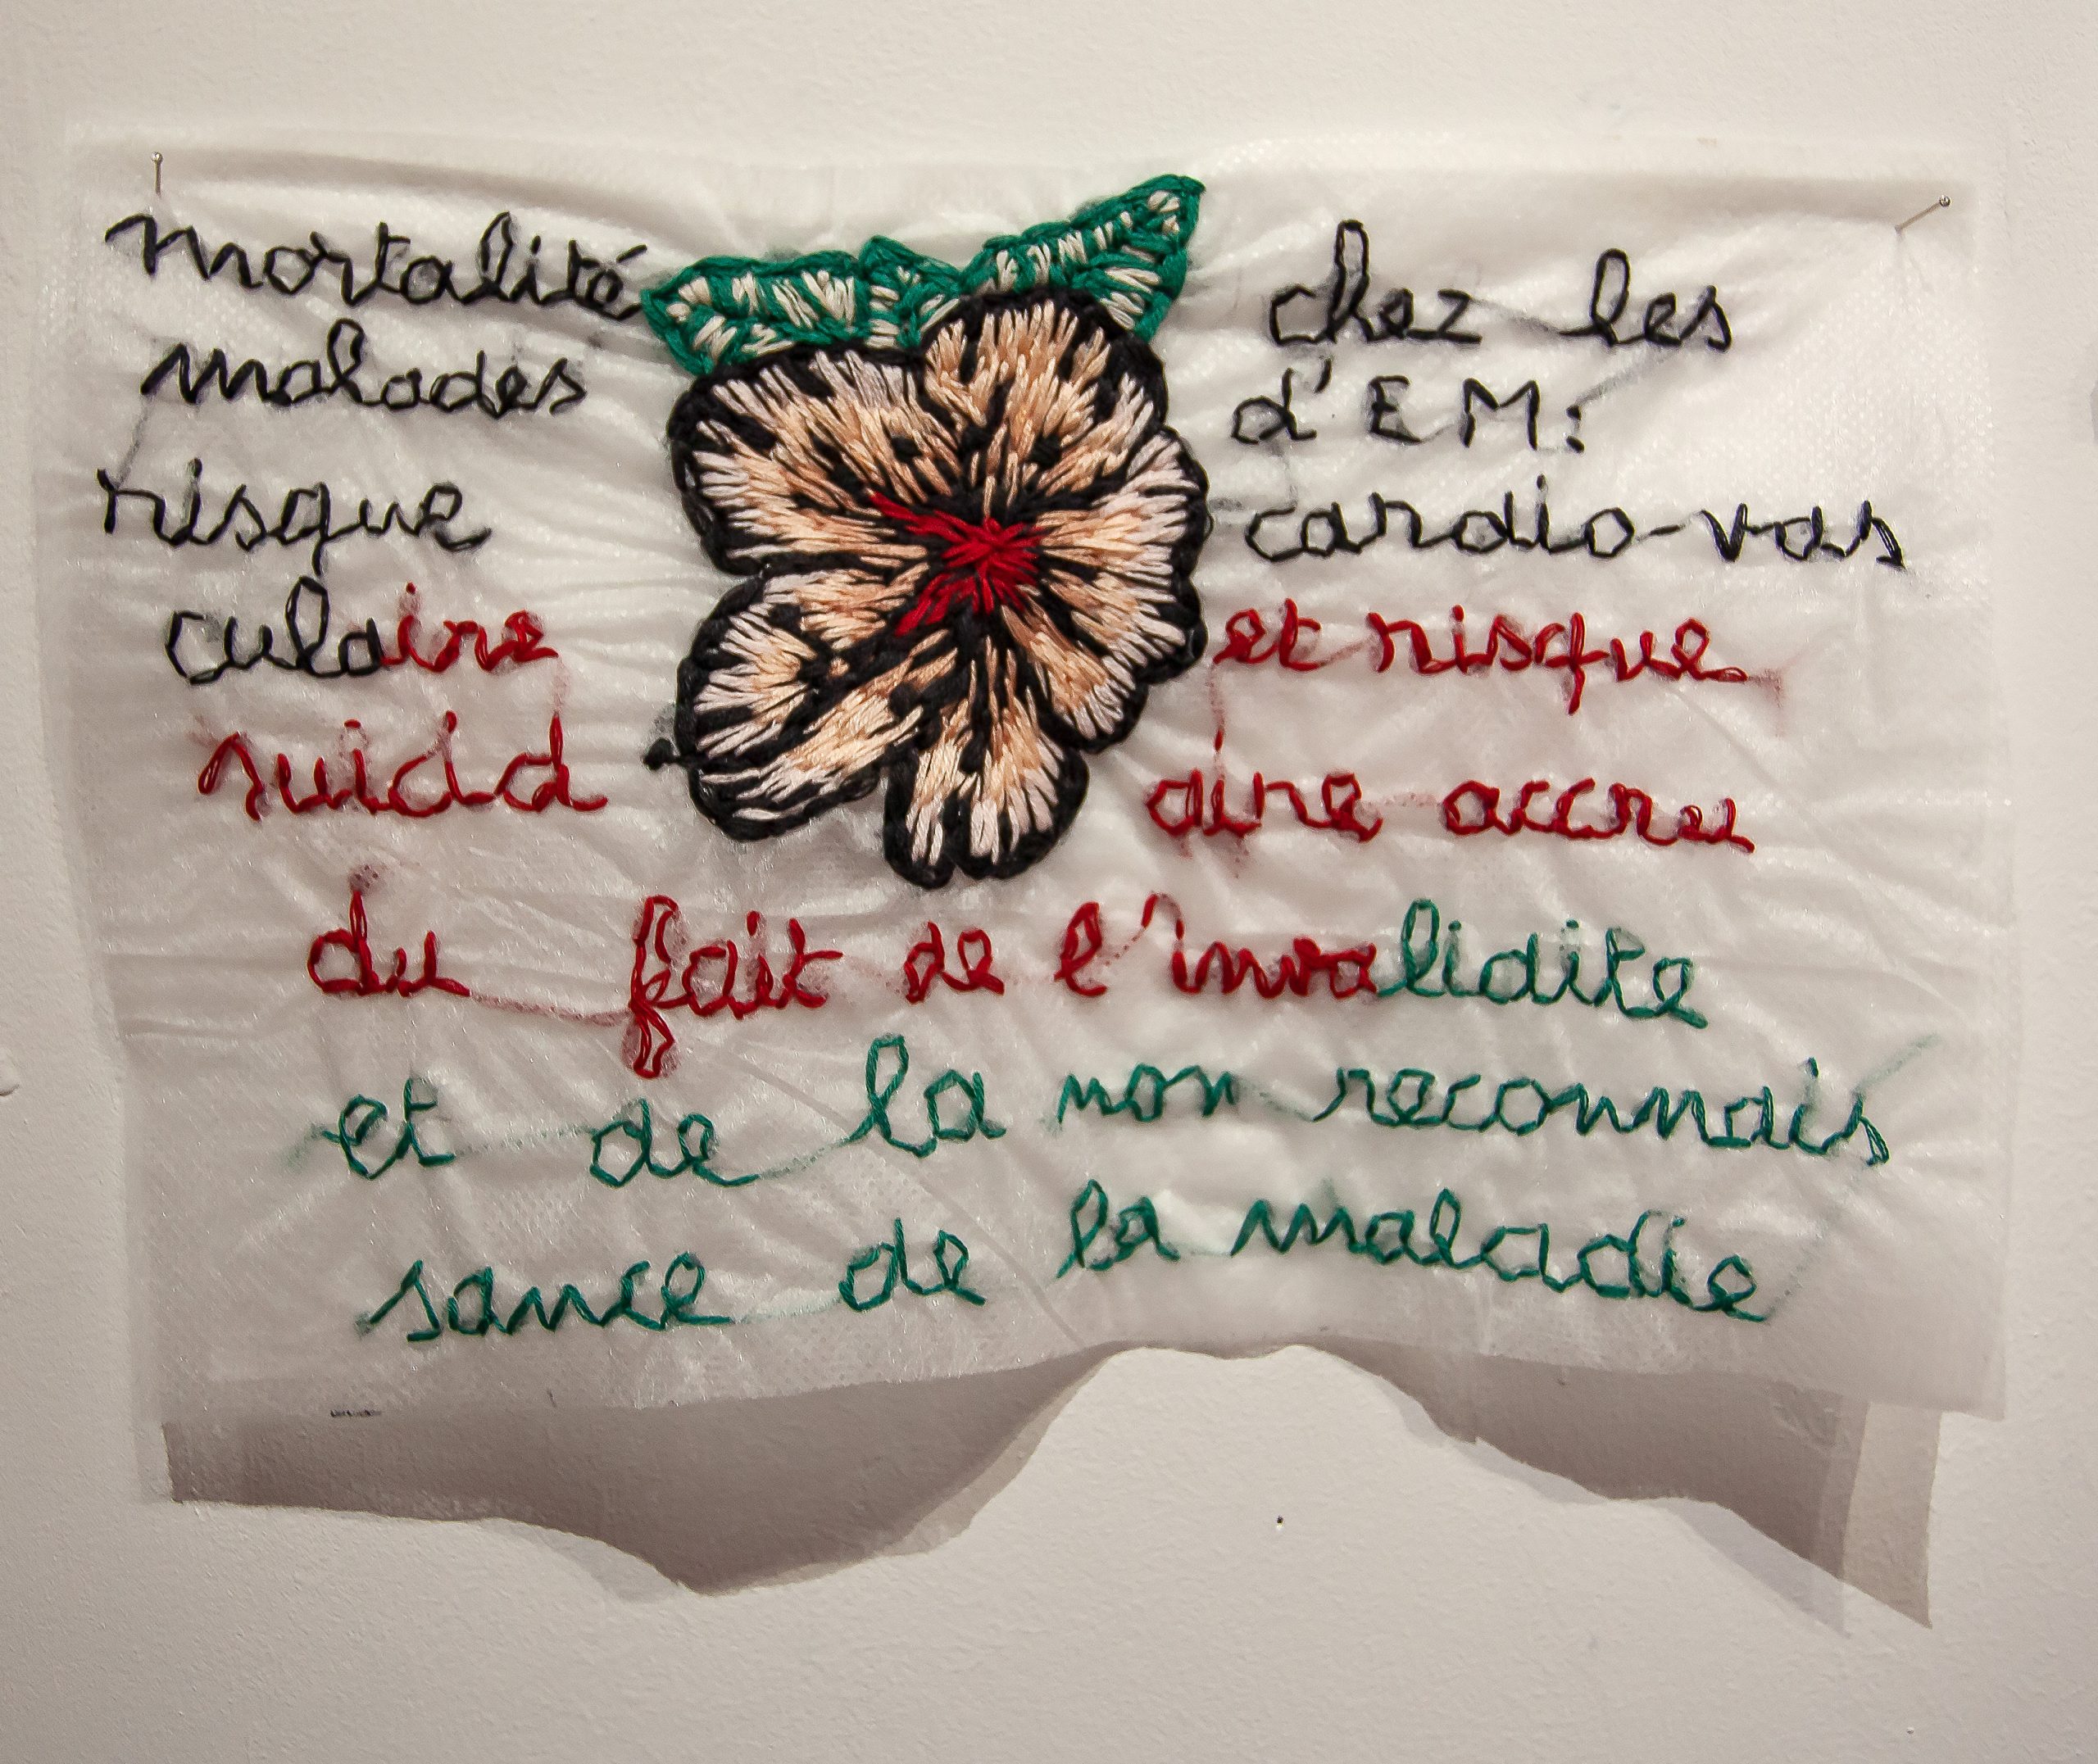 mortalité chez les
malades d'EM:
risque cardio-vas
culaire et risque
suicid aire accru
du fait de l'invalidite
et de la non reconnais
sance de la maladie